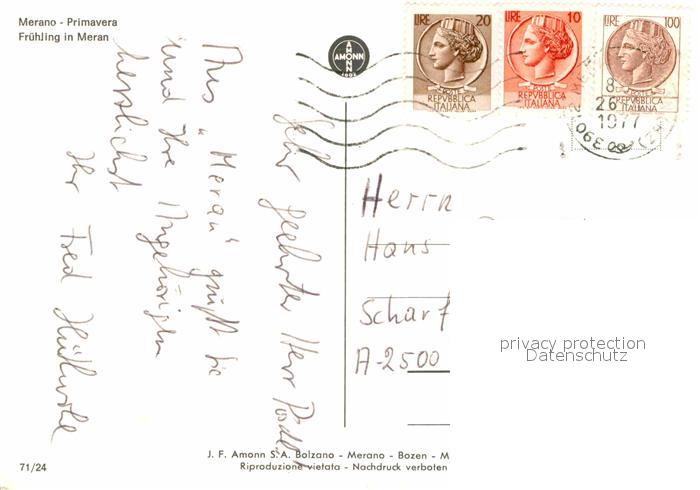 Merano - Primavera
Frühling in Meran
AMONN
1802
LIRE 20
REPVBBLICA
ITALIANA
LIRE 10
REPVBBLICA
ITALIANA
LIRE 100
REPVBBLICA
ITALIANA
8
26
1977
390
Sehr geehrter Herr
Aus "Meran" grüßt Sie
und Ihre Angehörigen
herzlichst
Ihr Fred
Herrn
Hans
Scharf
A-2500
privacy protection
Datenschutz
J. F. Amonn S. A. Bolzano - Merano - Bozen - M
Riproduzione vietata - Nachdruck verboten
71/24